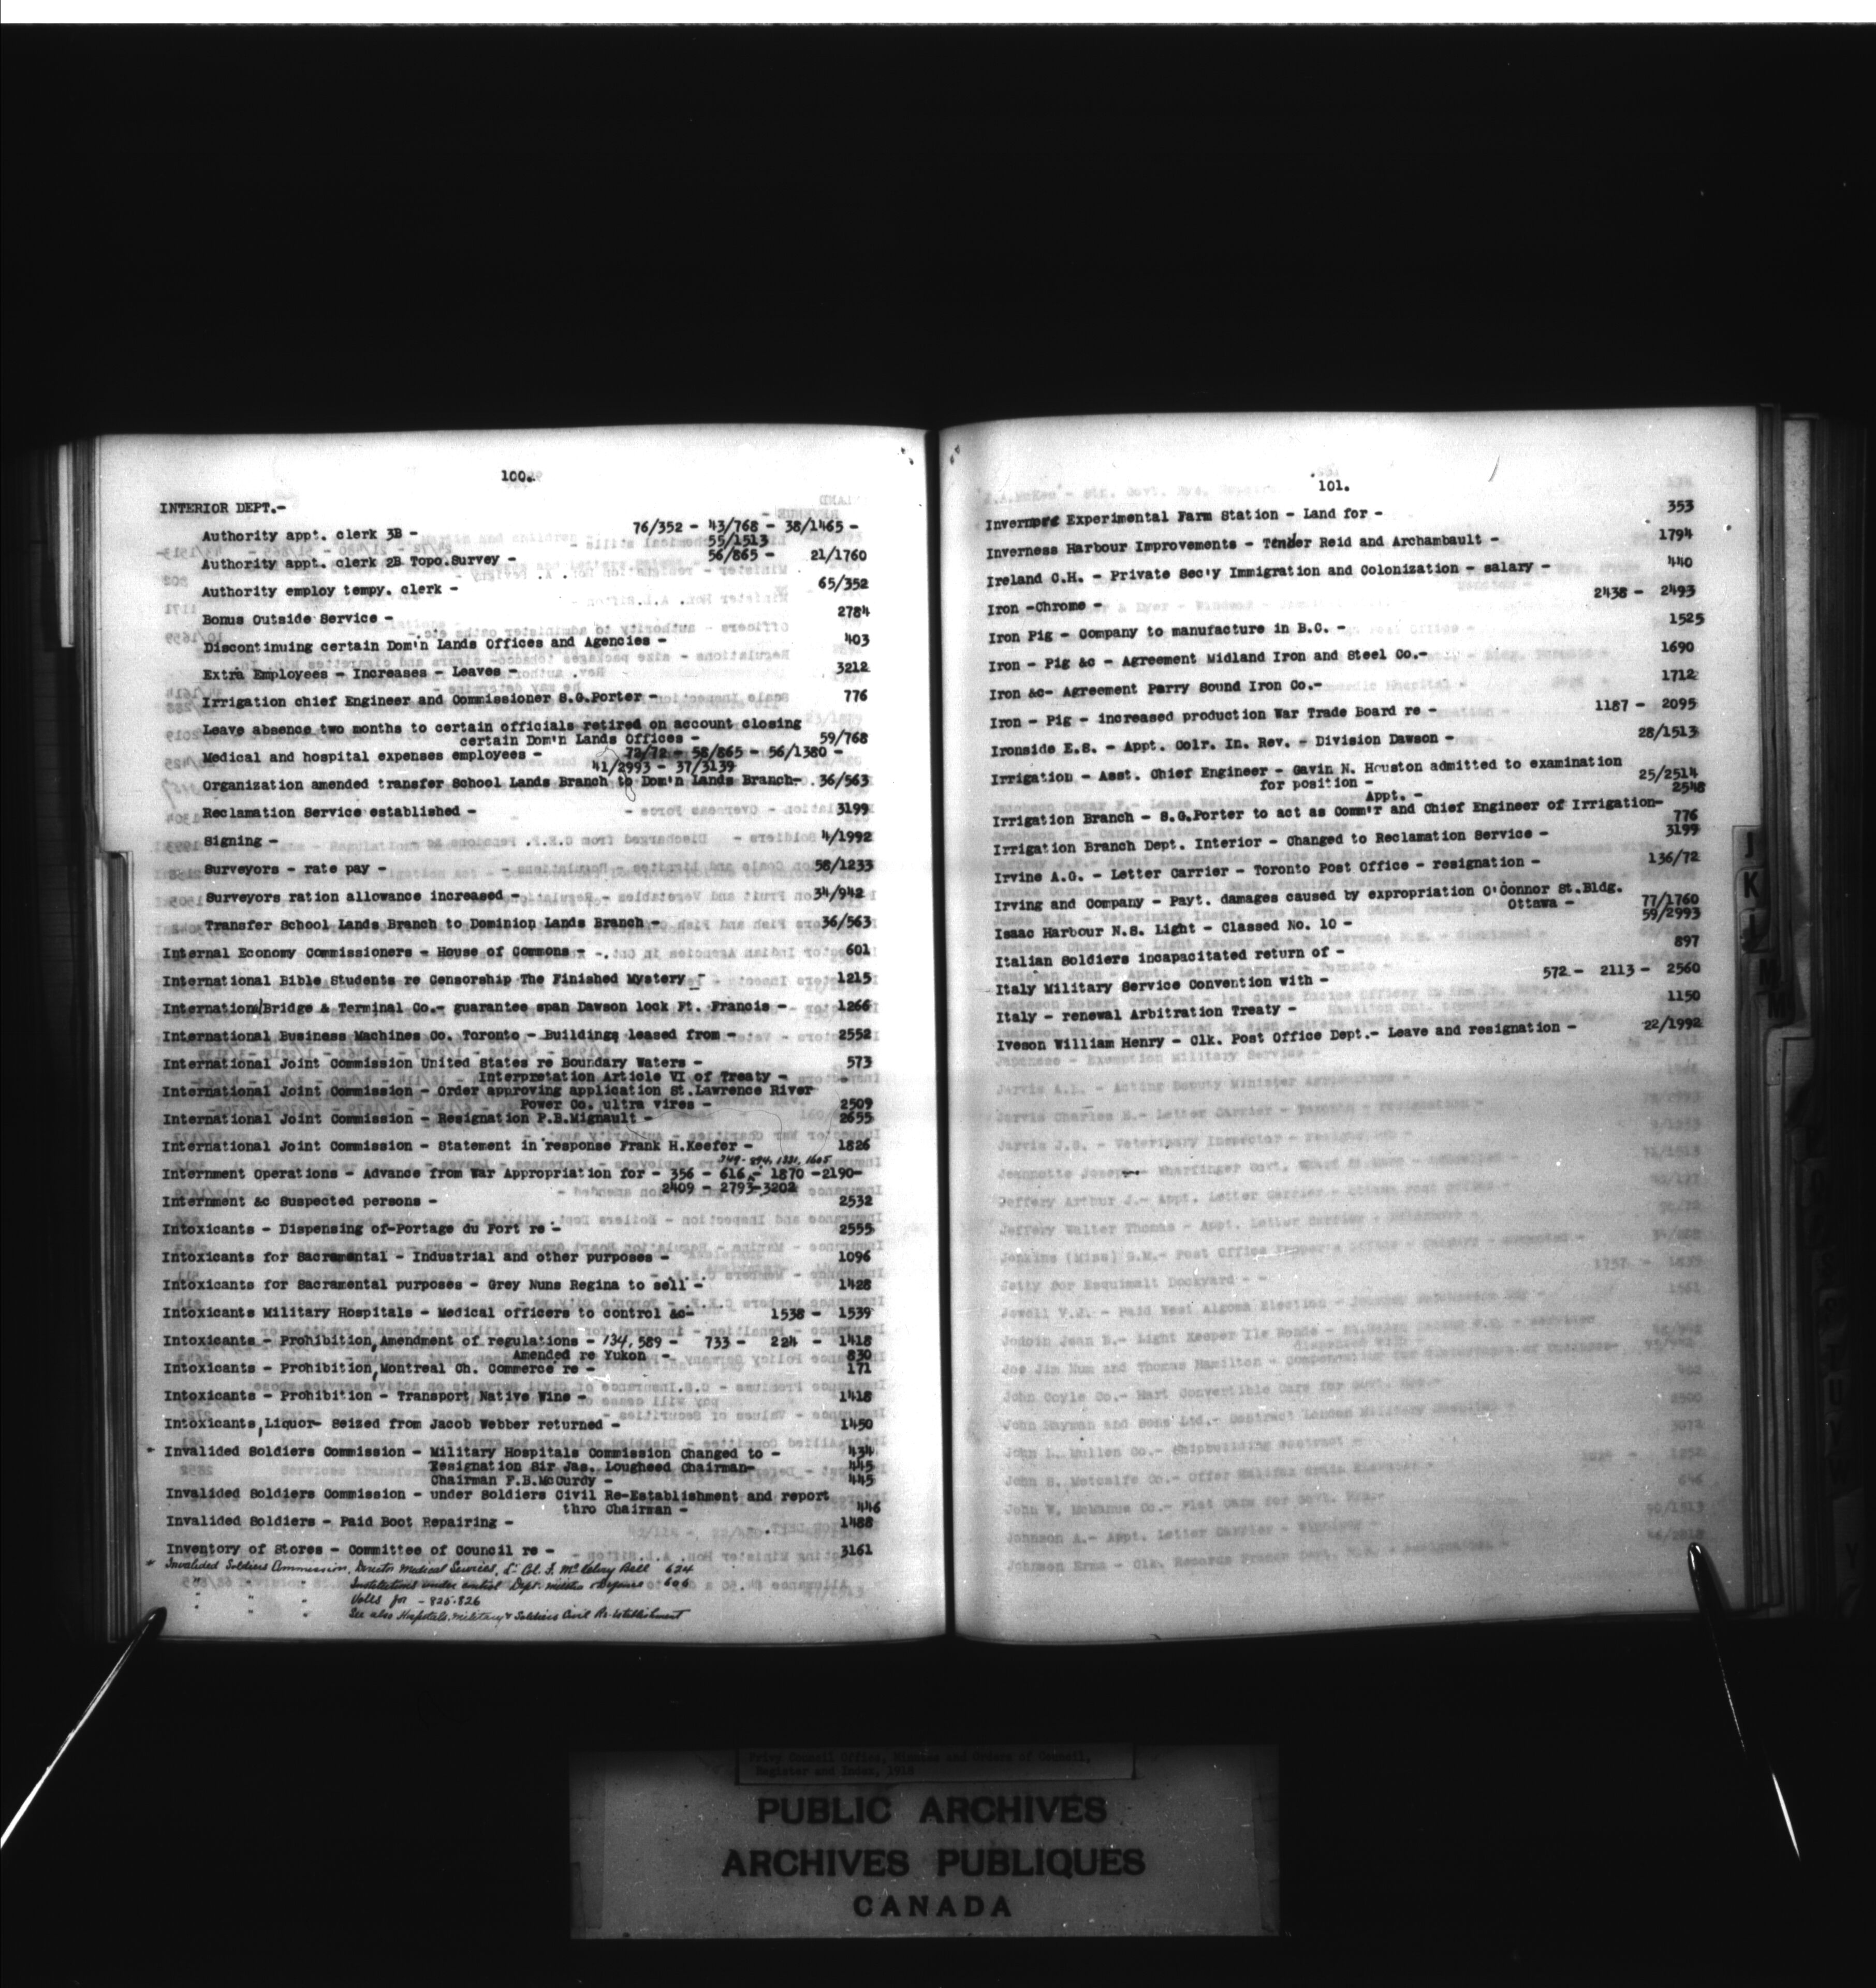 100.
INTERIOR DEPT.-
Authority appt. clerk 3B - 76/352 - 43/768 - 38/1465 -
55/1513
Authority appt. clerk 2B Topo.Survey - 56/865 - 21/1760
Authority employ tempy. clerk - 65/352
Bonus Outside Service - 2784
Discontinuing certain Dom'n Lands Offices and Agencies - 403
Extra Employees - Increases - Leaves - 3212
Irrigation chief Engineer and Commissioner S.G.Porter - 776
Leave absence two months to certain officials retired on account closing
certain Dom'n Lands Offices - 59/768
Medical and hospital expenses employees - 72/72 - 58/865 - 56/1380 -
41/2993 - 37/3139
Organization amended transfer School Lands Branch to Dom'n Lands Branch- 36/563
Reclamation Service established - 3199
Signing - 4/1992
Surveyors - rate pay - 58/1233
Surveyors ration allowance increased - 34/942
Transfer School Lands Branch to Dominion Lands Branch - 36/563
Internal Economy Commissioners - House of Commons - 601
International Bible Students re Censorship The Finished Mystery - 1215
International/Bridge & Terminal Co.- guarantee span Dawson lock Ft. Francis - 1266
International Business Machines Co. Toronto - Buildings leased from - 2552
International Joint Commission United States re Boundary Waters - 573
Interpretation Article VI of Treaty - "
International Joint Commission - Order approving application St.Lawrence River
Power Co. ultra vires - 2509
International Joint Commission - Resignation P.B.Mignault - 2655
International Joint Commission - Statement in response Frank H.Keefer - 1826
349 - 894, 1331, 1605
Internment Operations - Advance from War Appropriation for - 356 - 616 - 1870 -2190-
2409 - 2793-3202
Internment &c Suspected persons - 2532
Intoxicants - Dispensing of-Portage du Fort re - 2555
Intoxicants for Sacramental - Industrial and other purposes - 1096
Intoxicants for Sacramental purposes - Grey Nuns Regina to sell - 1428
Intoxicants Military Hospitals - Medical officers to control &c- 1538 - 1539
Intoxicants - Prohibition,Amendment of regulations - 134, 589 - 733 - 224 - 1418
Amended re Yukon - 830
Intoxicants - Prohibition,Montreal Ch. Commerce re - 171
Intoxicants - Prohibition - Transport Native Wine - 1418
Intoxicants,Liquor- Seized from Jacob Webber returned - 1450
* Invalided Soldiers Commission - Military Hospitals Commission Changed to - 434
Resignation Sir Jas. Lougheed Chairman- 445
Chairman F.B.McCurdy - 445
Invalided Soldiers Commission - under Soldiers Civil Re-Establishment and report
thro Chairman - 446
Invalided Soldiers - Paid Boot Repairing - 1488
Inventory of Stores - Committee of Council re - 3161
* Invalided Soldiers Commission, Director Medical Services, Lt Col. F. McKelvey Bell 624
" " " Institutions under control Dept. Militia & Defence 606
" " " Votes for - 825-826
" " " See also Hospitals, Military & Soldiers Civil Re-establishment
101.
Invermere Experimental Farm Station - Land for - 353
Inverness Harbour Improvements - Tender Reid and Archambault - 1794
Ireland C.H. - Private Sec'y Immigration and Colonization - salary - 440
Iron -Chrome - 2438 - 2493
Iron Pig - Company to manufacture in B.C. - 1525
Iron - Pig &c - Agreement Midland Iron and Steel Co.- 1690
Iron &c- Agreement Parry Sound Iron Co.- 1712
Iron - Pig - increased production War Trade Board re - 1187 - 2095
Ironside E.S. - Appt. Colr. In. Rev. - Division Dawson - 28/1513
Irrigation - Asst. Chief Engineer - Gavin N. Houston admitted to examination
for position - 25/2514
Appt. - 2548
Irrigation Branch - S.G.Porter to act as Comm'r and Chief Engineer of Irrigation-
776
Irrigation Branch Dept. Interior - Changed to Reclamation Service - 3199
Irvine A.G. - Letter Carrier - Toronto Post Office - resignation - 136/72
Irving and Company - Payt. damages caused by expropriation O'Connor St.Bldg.
Ottawa - 77/1760
Isaac Harbour N.S. Light - Classed No. 10 - 59/2993
Italian Soldiers incapacitated return of - 897
Italy Military Service Convention with - 572 - 2113 - 2560
Italy - renewal Arbitration Treaty - 1150
Iveson William Henry - Clk. Post Office Dept.- Leave and resignation - 22/1992
J
K
Privy Council Office, Minutes and Orders of Council,
Register and Index, 1918
PUBLIC ARCHIVES
ARCHIVES PUBLIQUES
CANADA